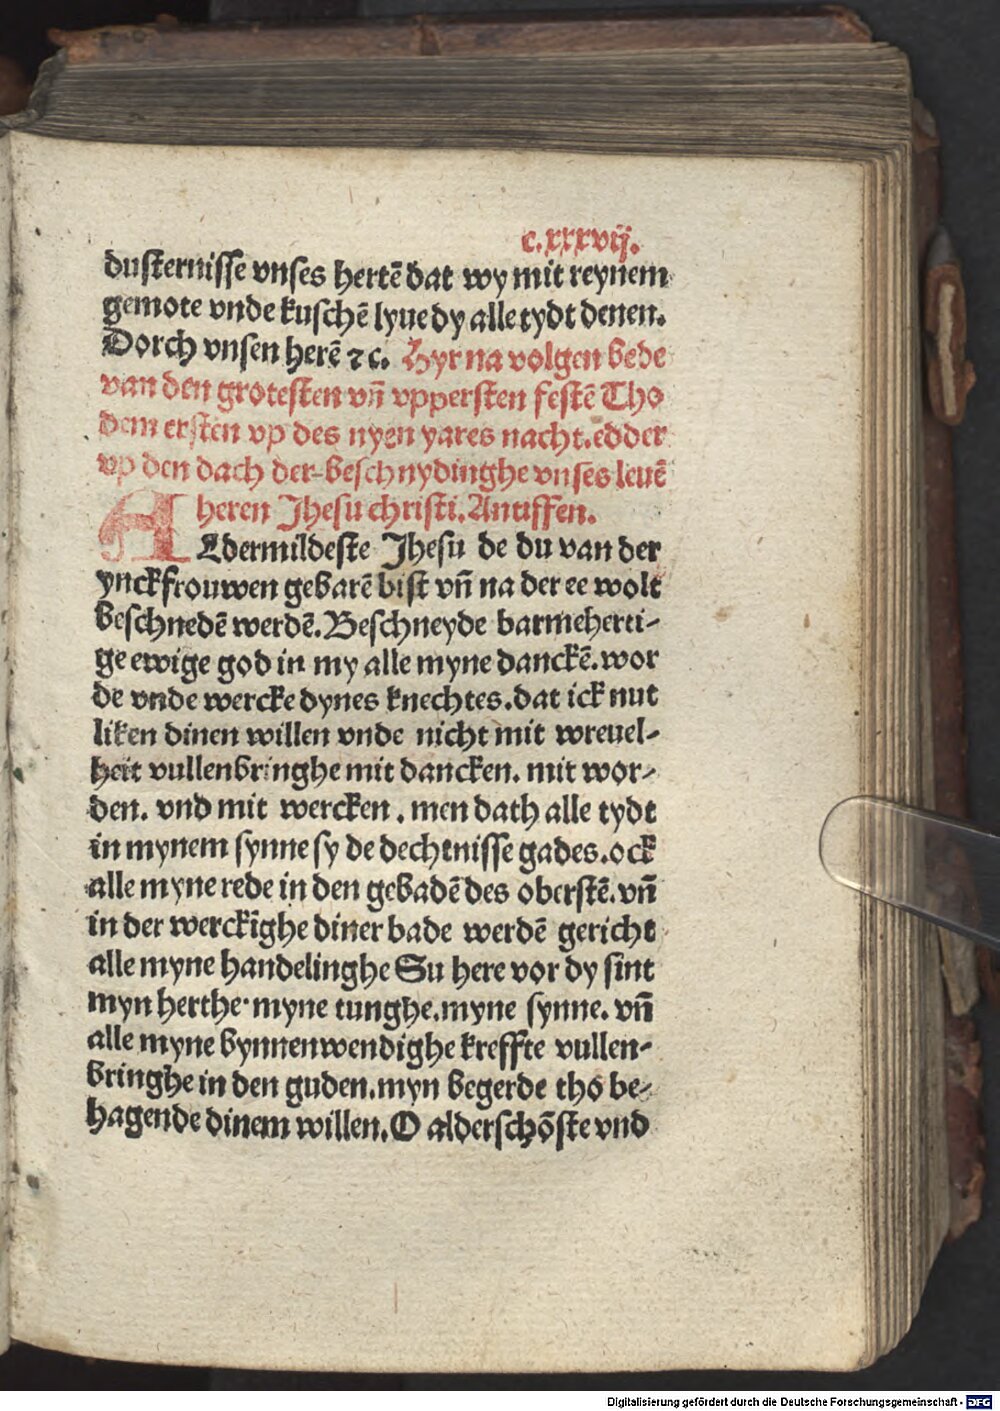 c.xxxvij.
dusternisse vnses hertē dat wy mit reynem
gemote vnde kuschē lyue dy alle tydt denen.
Dorch vnsen herē ⁊c. Hyr na volgen bede
van den grotesten vñ vppersten festē Tho
dem ersten vp des nyen yares nacht.edder
vp den dach der-beschnydinghe vnses leuē
heren Jhesu christi.Antiffen.
ALdermildeste Jhesu de du van der
ynckfrouwen gebarē bist vñ na der ee wolt
beschnedē werdē.Beschneyde barmeherti-
ge ewige god in my alle myne danckē.wor
de vnde wercke dynes knechtes.dat ick nut
liken dinen willen vnde nicht mit wreuel-
heit vullenbringhe mit dancken. mit wor-
den. vnd mit wercken . men dath alle tydt
in mynem synne sy de dechtnisse gades.ock
alle myne rede in den gebadē des oberstē.vñ
in der werckīghe diner bade werdē gericht
alle myne handelinghe Su here vor dy sint
myn herthe·myne tunghe.myne synne. vñ
alle myne bynnenwendighe kreffte vullen-
bringhe in den guden.myn begerde tho be-
hagende dinem willen.O alderschōste vnd
Digitalisierung gefördert durch die Deutsche Forschungsgemeinschaft - DFG